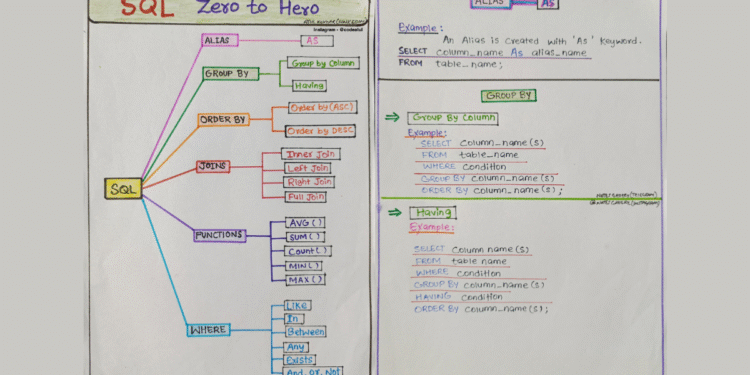 SQL Zero to Hero
ALIAS
AS
GROUP BY
Group by Column
Having
ORDER BY
Order by (ASC)
Order by DESC
JOINS
Inner Join
Left Join
Right Join
Full Join
SQL
FUNCTIONS
AVG ( )
SUM ( )
Count ( )
MIN ( )
MAX ( )
WHERE
Like
In
Between
Any
Exists
And, Or, Not
ALIAS
AS
Example:
An Alias is created with 'As' keyword.
SELECT column_name As alias_name
FROM table_name;
GROUP BY
Group By Column
Example:
SELECT column_name(s)
FROM table_name
WHERE condition
GROUP BY column_name(s)
ORDER BY column_name(s);
Having
Example:
SELECT column name(s)
FROM table name
WHERE condition
GROUP BY column_name(s)
HAVING condition
ORDER BY column_name(s);